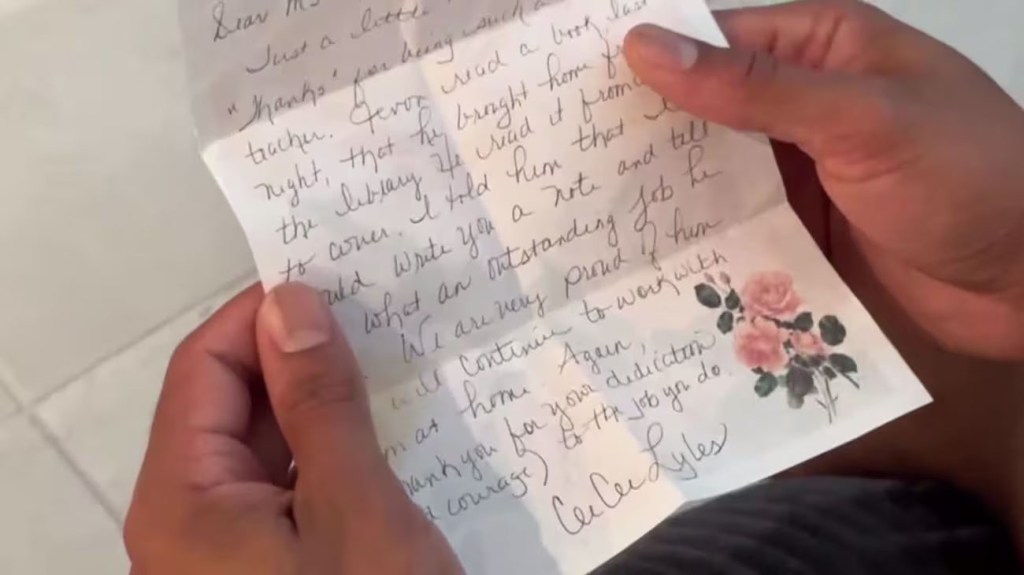 Dear Ms
Just a little
"Thanks" for being such a
teacher. Jevon read a book last
night, that he brought home
the library. He read it from
to cover. I told him that I
write you a note and tell
what an outstanding job he
We are very proud of him
Continue to work with
at home. Again,
thank you for your dedication
courage) to the job you do.
CeeCee Lyles